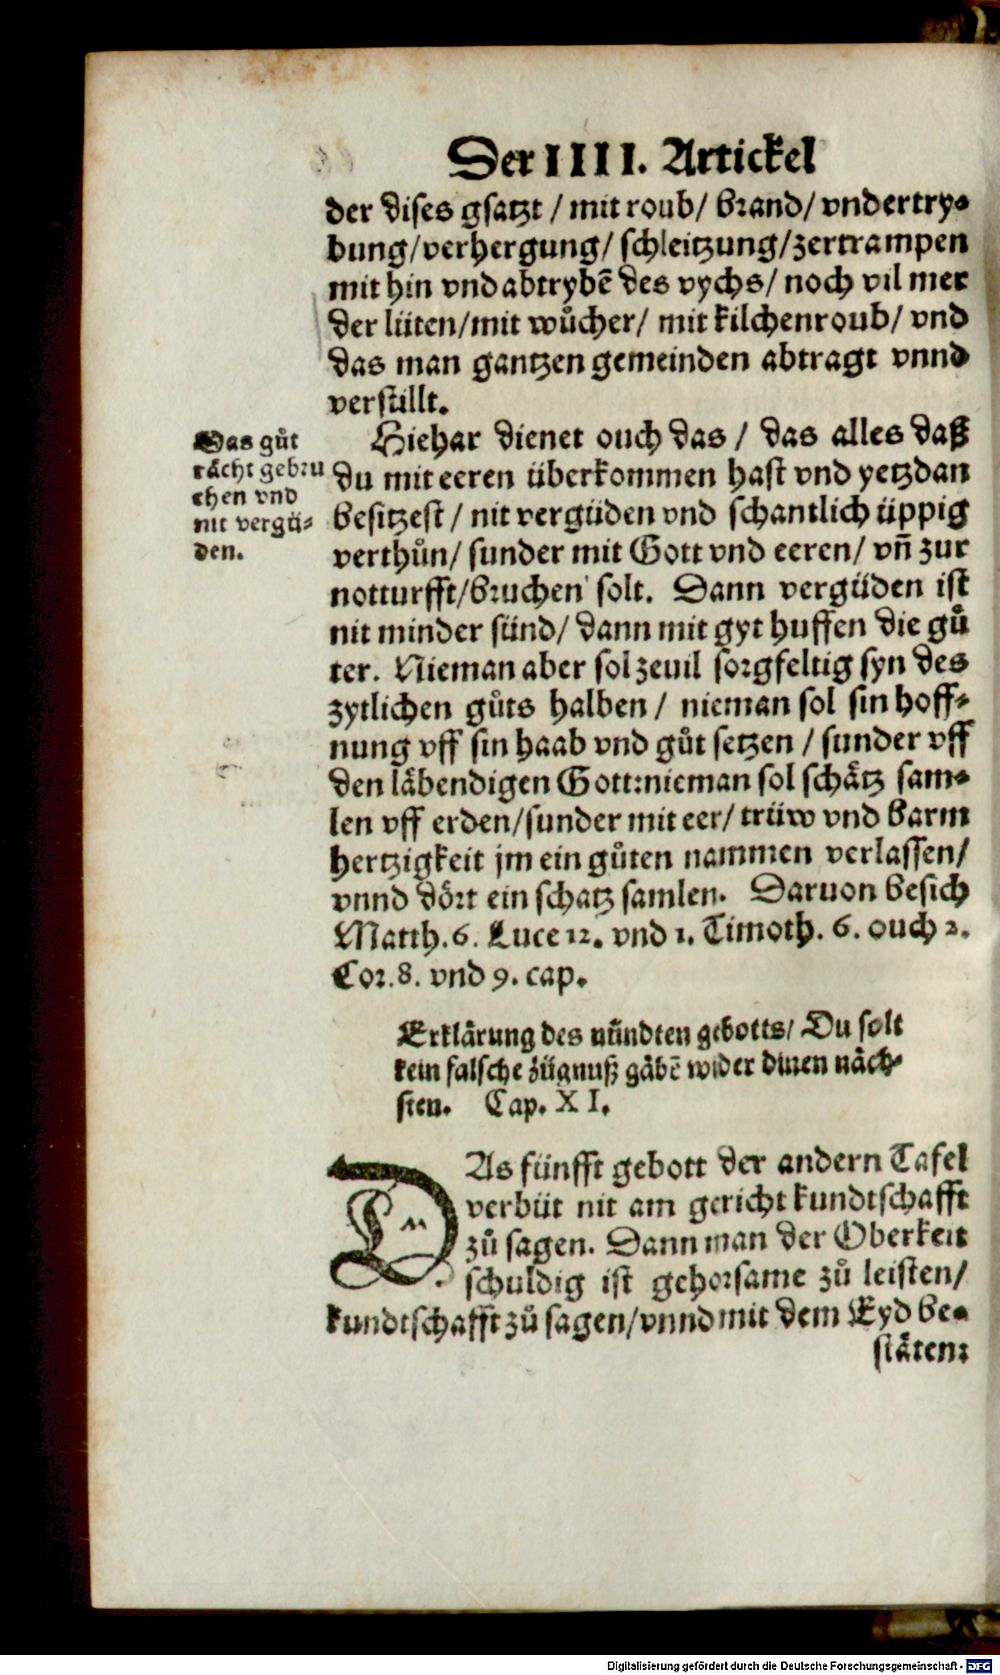 Der IIII. Artickel
der dises gsatzt / mit roub / brand / vndertry-
bung / verhergung / schleitzung / zertrampen
mit hin vnd abtrybē des vychs / noch vil mer
der lüten / mit wůcher / mit kilchenroub / vnd
das man gantzen gemeinden abtragt vnnd
verstillt.
Das gůt
rächt gebru
chen vnd
nit vergü-
den.
Hiehar dienet ouch das / das alles daß
du mit eeren überkommen hast vnd yetzdan
besitzest / nit vergüden vnd schantlich üppig
verthůn / sunder mit Gott vnd eeren / vñ zur
notturfft / bruchen solt. Dann vergüden ist
nit minder sünd / dann mit gyt huffen die gů
ter. Nieman aber sol zeuil sorgfeltig syn des
zytlichen gůts halben / nieman sol sin hoff-
nung vff sin haab vnd gůt setzen / sunder vff
den läbendigen Gott: nieman sol schätz sam-
len vff erden / sunder mit eer / trüw vnd barm
hertzigkeit jm ein gůten nammen verlassen /
vnnd dört ein schatz samlen. Daruon besich
Matth. 6. Luce 12. vnd 1. Timoth. 6. ouch 2.
Cor. 8. vnd 9. cap.
Erklärung des nündten gebotts / Du solt
kein falsche zügnuß gäbē wider dinen näch-
sten. Cap. XI.
DAs fünfft gebott der andern Tafel
verbüt nit am gericht kundtschafft
zů sagen. Dann man der Oberkeit
schuldig ist gehorsame zů leisten /
kundtschafft zů sagen / vnnd mit dem Eyd be-
stäten:
Digitalisierung gefördert durch die Deutsche Forschungsgemeinschaft - DFG